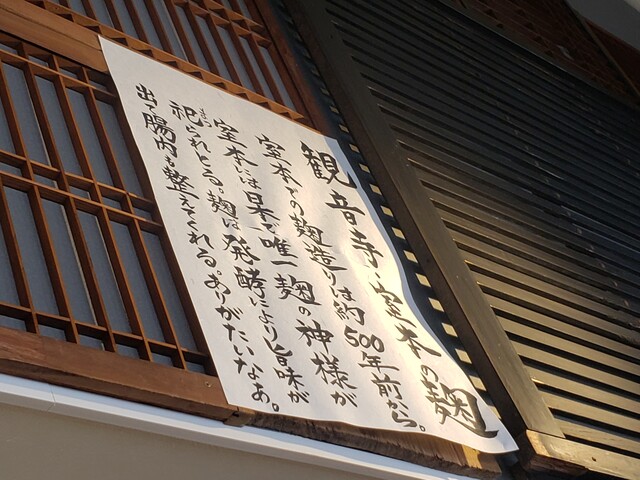 観音寺・室本の麹
室本での麹造りは約500年前から。
室本には日本で唯一麹の神様が
祀られとる。麹は発酵により旨味が
出て腸内も整えてくれる。ありがたいなあ。
まつ